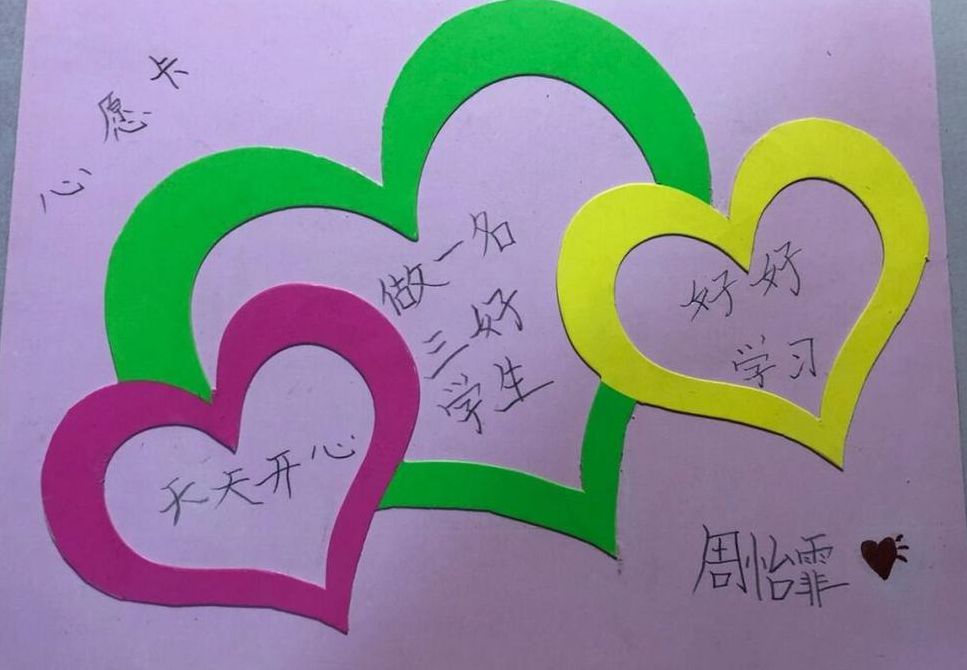 心愿卡
做一名
三好
学生
好好
学习
天天开心
周怡霏